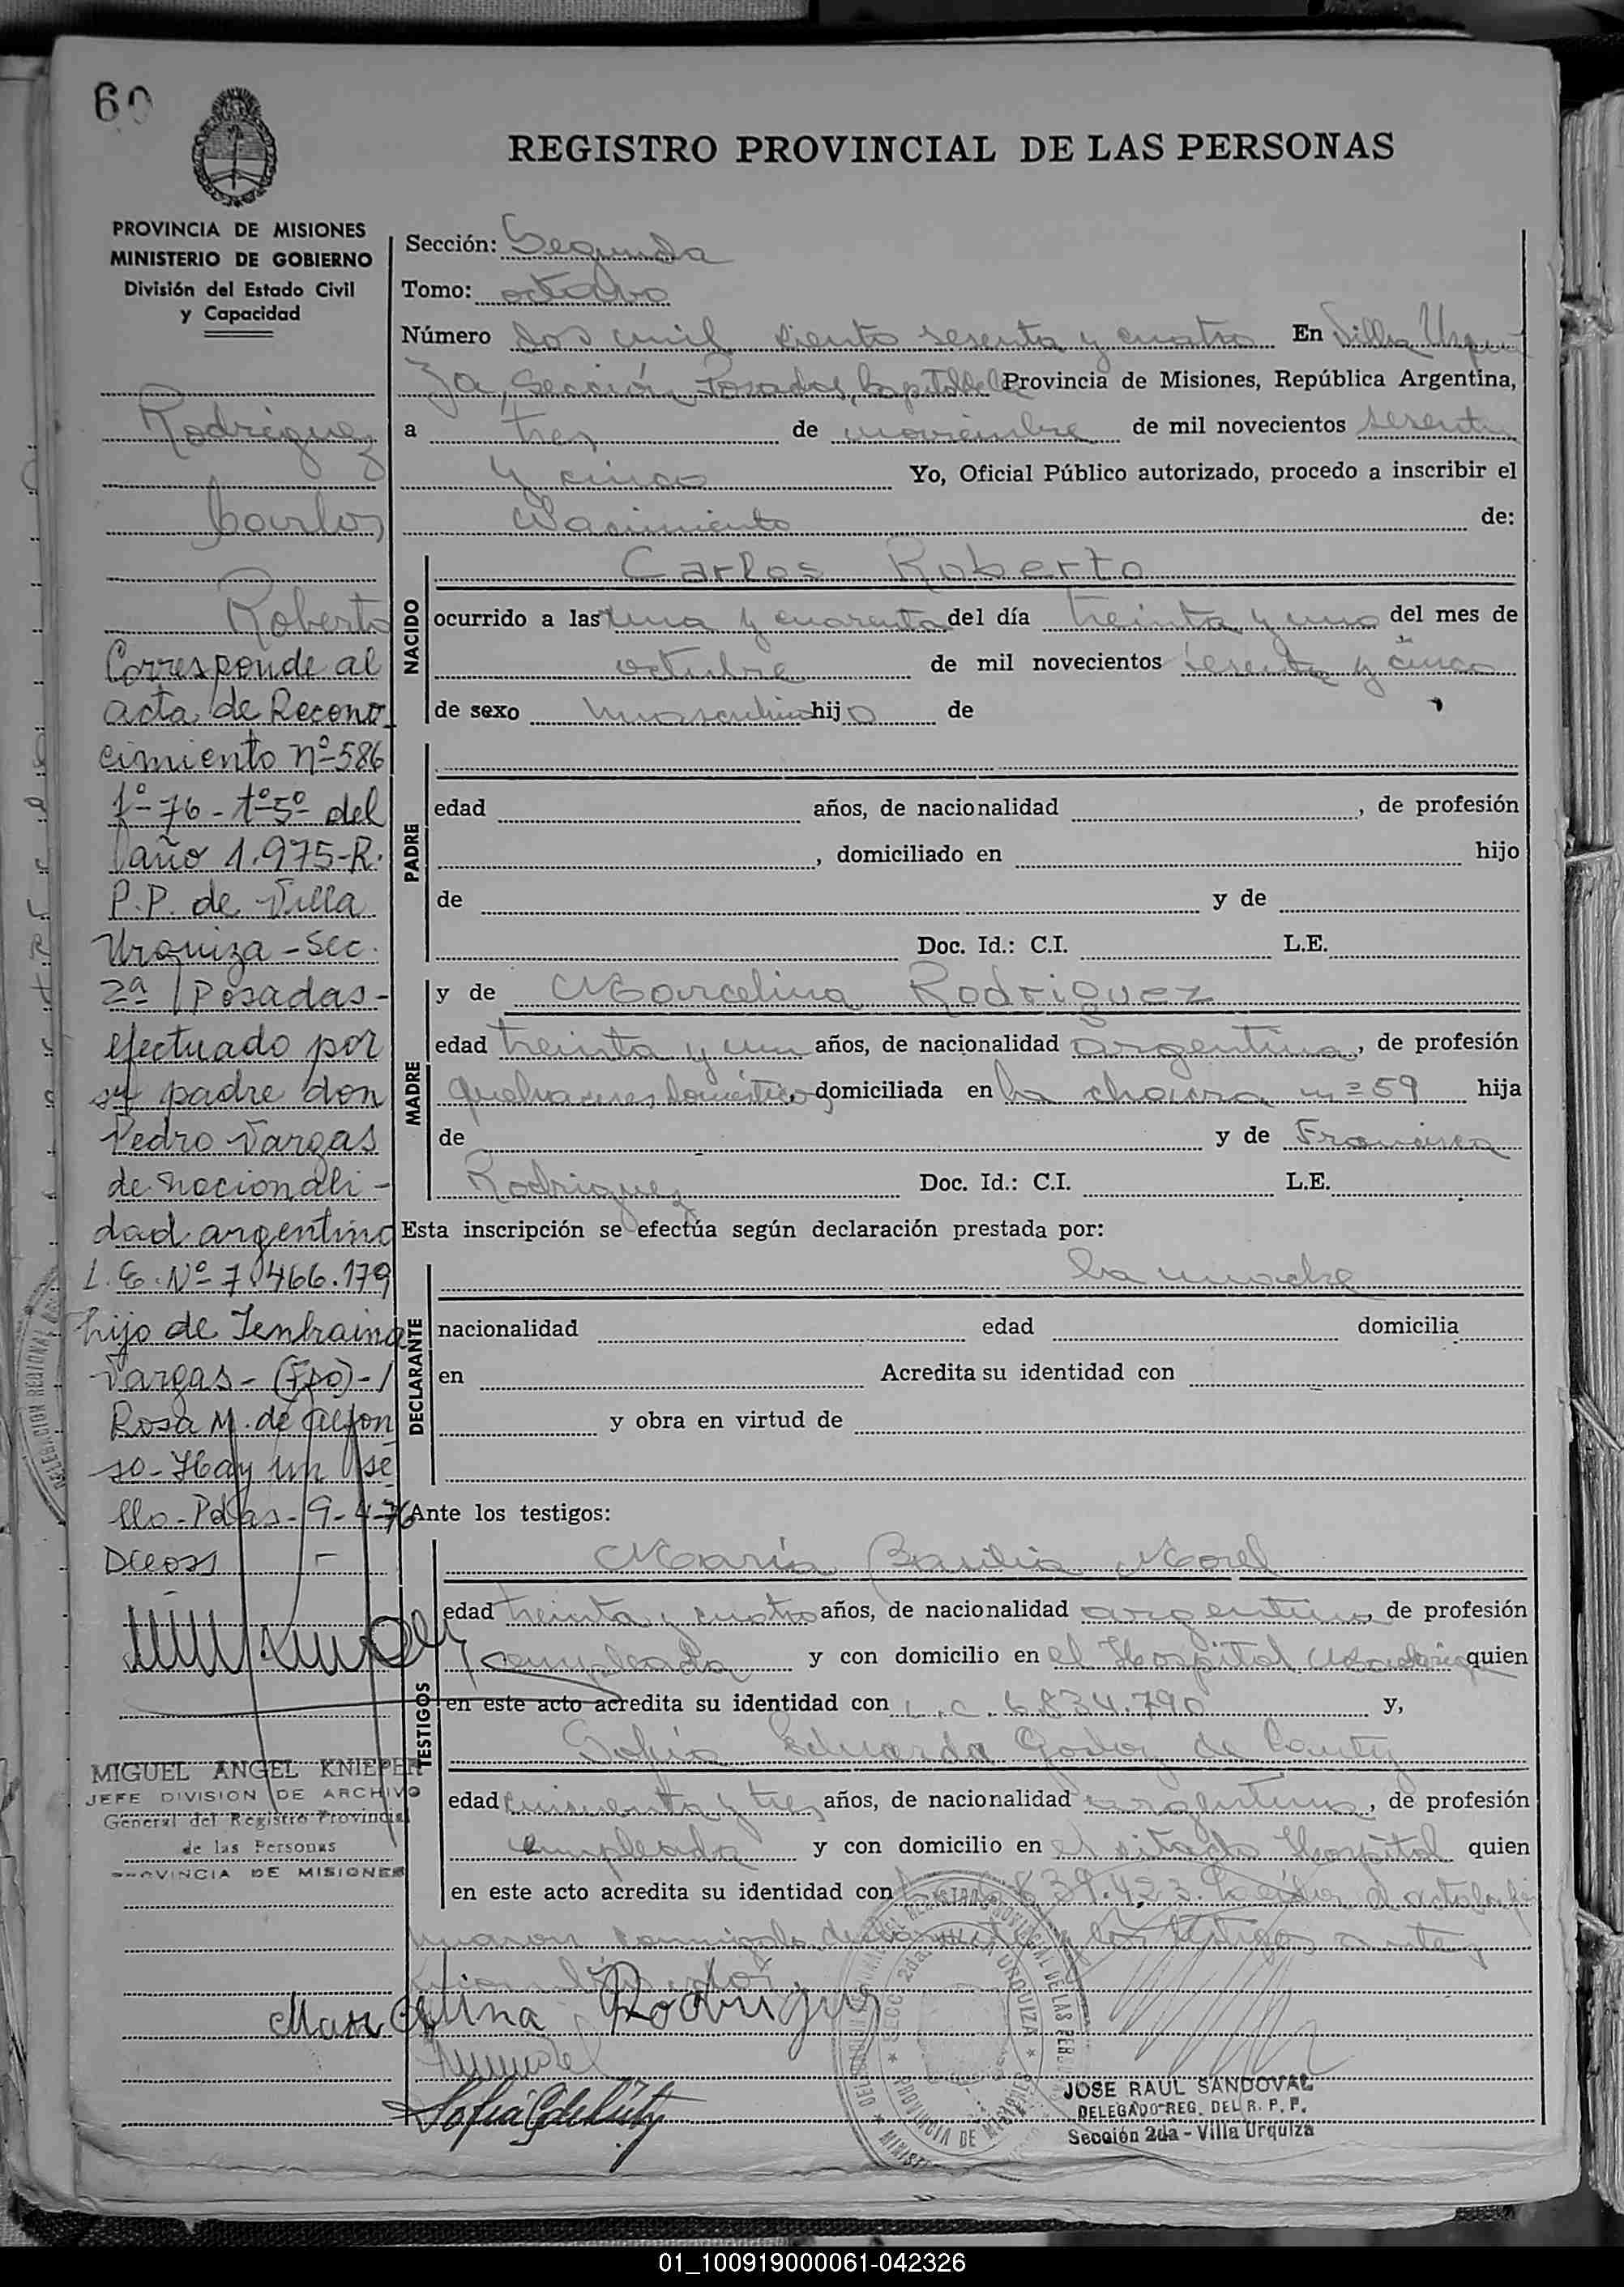 60
REGISTRO PROVINCIAL DE LAS PERSONAS
PROVINCIA DE MISIONES
MINISTERIO DE GOBIERNO
División del Estado Civil
y Capacidad
Rodriguez
Carlos
Roberto
Corresponde al
acta de Recono
cimiento nº 586
fº 76 - tº 5º del
año 1.975-R.
P.P. de Villa
Urquiza - Sec.
2ª Posadas -
efectuado por
su padre don
Pedro Vargas
de nacionali -
dad argentina
L.E. Nº 7.466.179
hijo de
Vargas - (Fdo) -
Rosa M. de Alfon
so - Hay un se
llo - Pdas - 9-4-76
MIGUEL ANGEL KNIEPER
JEFE DIVISION DE ARCHIVO
General del Registro Provincial
de las Personas
PROVINCIA DE MISIONES
Sección: Segunda
Tomo: octavo
Número dos mil ciento sesenta y cuatro En Villa Urqui
za, Sección Posadas, Capital de la Provincia de Misiones, República Argentina,
a tres de noviembre de mil novecientos sesenta
y cinco Yo, Oficial Público autorizado, procedo a inscribir el
Nacimiento de:
NACIDO
Carlos Roberto
ocurrido a las una y cuarenta del día treinta y uno del mes de
octubre de mil novecientos sesenta y cinco
de sexo masculino hijo de
PADRE
edad años, de nacionalidad , de profesión
, domiciliado en hijo
de y de
Doc. Id.: C.I. L.E.
MADRE
y de Marcelina Rodriguez
edad treinta y un años, de nacionalidad argentina, de profesión
quehaceres domésticos domiciliada en la chacra nº 59 hija
de y de Francisca
Rodriguez Doc. Id.: C.I. L.E.
Esta inscripción se efectúa según declaración prestada por:
DECLARANTE
la madre
nacionalidad edad domicilia
en Acredita su identidad con
y obra en virtud de
Ante los testigos:
TESTIGOS
María Basilia Morel
edad treinta y cuatro años, de nacionalidad argentina, de profesión
empleada y con domicilio en el Hospital quien
en este acto acredita su identidad con L.C. 6.834.790 y,
Sofía Eduarda Godoy de
edad cincuenta y tres años, de nacionalidad argentina, de profesión
empleada y con domicilio en el citado Hospital quien
en este acto acredita su identidad con
declarante y los testigos
Marcelina Rodriguez
JOSE RAUL SANDOVAL
DELEGADO REG. DEL R. P. P.
Sección 2da - Villa Urquiza
01_100919000061-042326